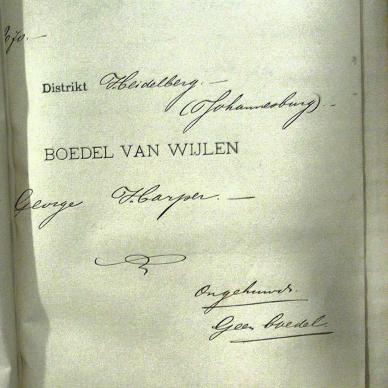 Distrikt Heidelberg. —
(Johannesburg). —
BOEDEL VAN WIJLEN
George Harper. —
Ongehuwd.
Geen boedel.